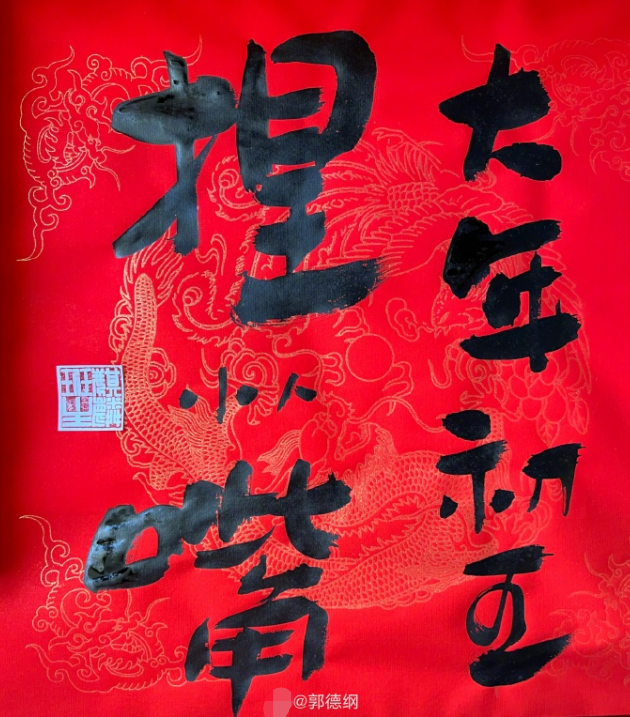 大年初五
捏小人嘴
@郭德纲